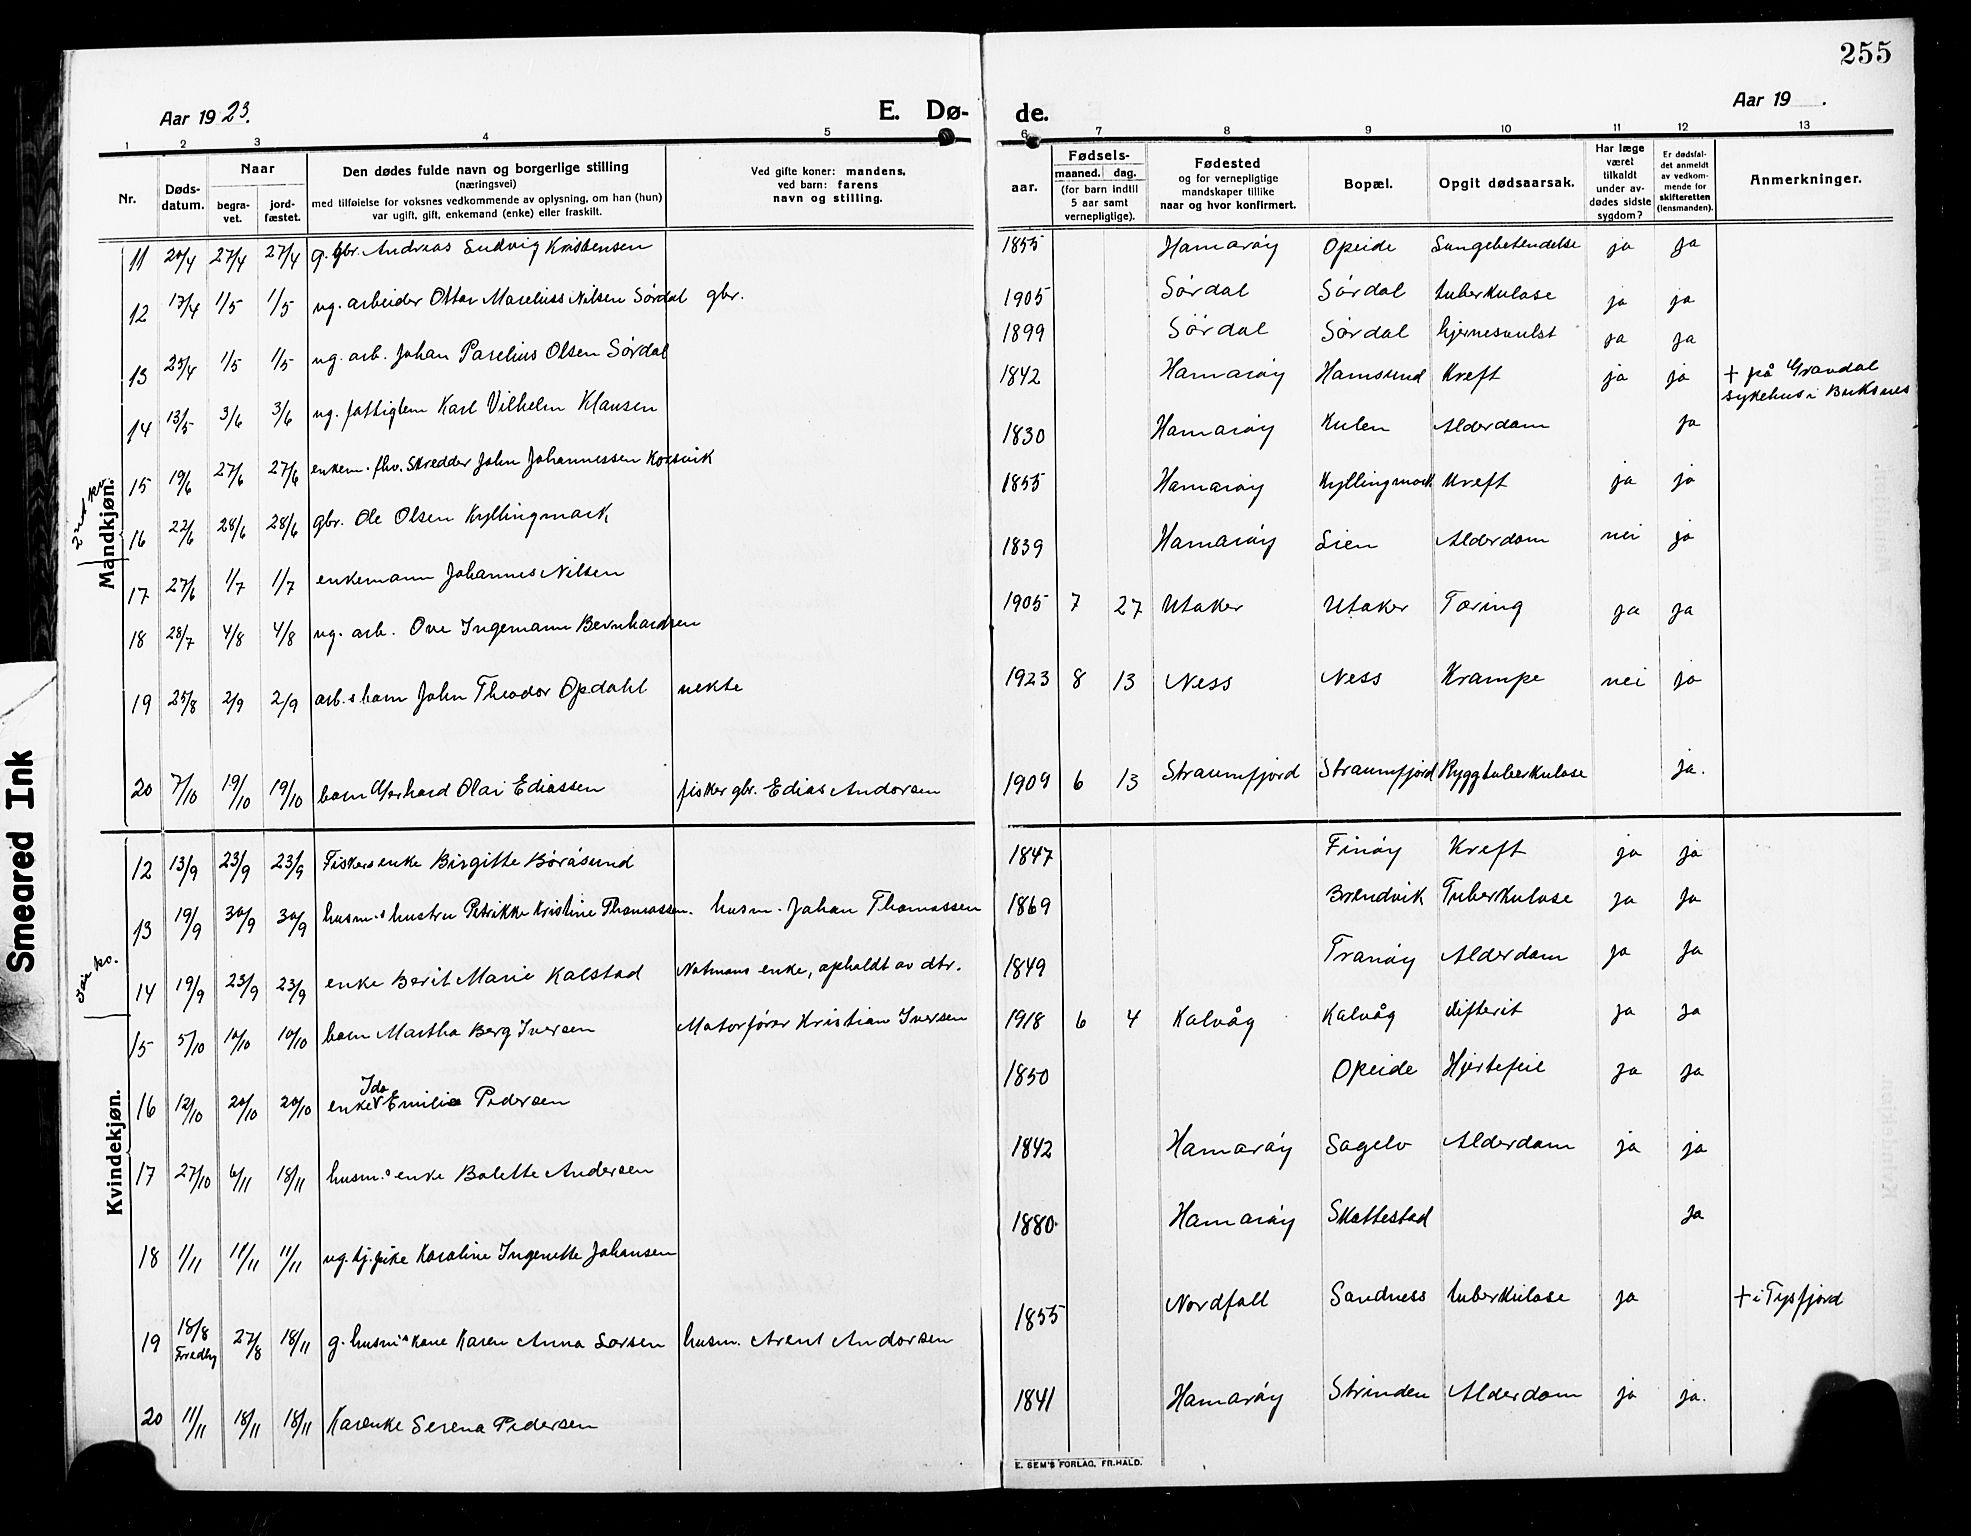 255
Aar 1923.
E. Dø-
de.
Aar 19 .
1 2 3 4 5 6 7 8 9 10 11 12 13
Nr.
Døds-
datum.
Naar
begra-
vet.
jord-
fæstet.
Den dødes fulde navn og borgerlige stilling
(næringsvei)
med tilføielse for voksnes vedkommende av oplysning, om han (hun)
var ugift, gift, enkemand (enke) eller fraskilt.
Ved gifte koner: mandens,
ved barn: farens
navn og stilling.
aar.
Fødsels-
maaned. dag.
(for barn indtil
5 aar samt
vernepligtige).
Fødested
og for vernepligtige
mandskaper tillike
naar og hvor konfirmert.
Bopæl.
Opgit dødsaarsak.
Har læge
været
tilkaldt
under av-
dødes sidste
sygdom?
Er dødsfal-
det anmeldt
av vedkom-
mende for
skifteretten
(lensmanden).
Anmerkninger.
Mandkjøn.
11 20/4 27/4 27/4 g. gbr. Andreas Ludvig Kristensen 1855 Hamarøy Opeide Lungebetendelse ja ja
12 17/4 1/5 1/5 ug. arbeider Ottar Marelius Nilsen Sørdal gbr. 1905 Sørdal Sørdal tuberkulose ja ja
13 25/4 1/5 1/5 ug. arb. Johan Parelius Olsen Sørdal 1899 Sørdal Sørdal hjernesvulst ja ja
14 13/5 3/6 3/6 ug. fattiglem Karl Vilhelm Klausen 1842 Hamarøy Hamsund Kreft ja ja + på Gravdal
sykehus i Buksnes
15 19/6 27/6 27/6 enkem. fhv. Skredder John Johannessen Korsvik 1830 Hamarøy Kulen Alderdom ja
16 22/6 28/6 28/6 gbr. Ole Olsen Kyllingmark 1855 Hamarøy Kyllingmark Kreft ja ja
17 27/6 1/7 1/7 enkemann Johannes Nilsen 1839 Hamarøy Lien Alderdom nei ja
18 28/7 4/8 4/8 ug. arb. Ove Ingemann Bernhardsen 1905 7 27 Utaker Utaker Tæring ja ja
19 25/8 2/9 2/9 arb.s barn John Theodor Opdahl nekte 1923 8 13 Ness Ness Krampe nei ja
20 7/10 19/10 19/10 barn Gerhard Olai Ediassen fisker gbr. Edias Andorsen 1909 6 13 Straumfjord Straumfjord Ryggtuberkulose ja.
Kvindekjøn.
12 13/9 23/9 23/9 Fiskers enke Birgitte Børåsund 1847 Finøy Kreft ja ja
13 19/9 30/9 30/9 husm.s hustru Petrikke Kristine Thomassen. husm. Johan Thomassen 1869 Brendvik Tuberkulose ja ja
14 19/9 23/9 23/9 enke Berit Marie Kalstad Notmans enke, opholdt av dtr. 1849 Tranøy Alderdom ja ja
15 5/10 10/10 10/10 barn Martha Berg Iversen Motorfører Kristian Iversen 1918 6 4 Kalvåg Kalvåg difterit ja ja
16 12/10 20/10 20/10 enke Ida Emilie Pedersen 1850 Opeide Hjertefeil ja ja
17 27/10 6/11 18/11 husm.s enke Bolette Andersen 1842 Hamarøy Sagelv Alderdom ja ja
18 1/11 11/11 11/11 ug. tj.pike Karoline Ingenette Johansen 1880. Hamarøy Skottestad ja
19 18/8 27/8 18/11 g. husm.s kone Karen Anna Larsen husm. Arent Andorsen 1855 Nordfoll Sandness tuberkulose ja + i Tysfjord
20 11/11 18/11 18/11 Karenke Serena Pedersen 1841 Hamarøy Strinden Alderdom ja ja.
E. SEM'S FORLAG, FR.HALD.
Smeared Ink